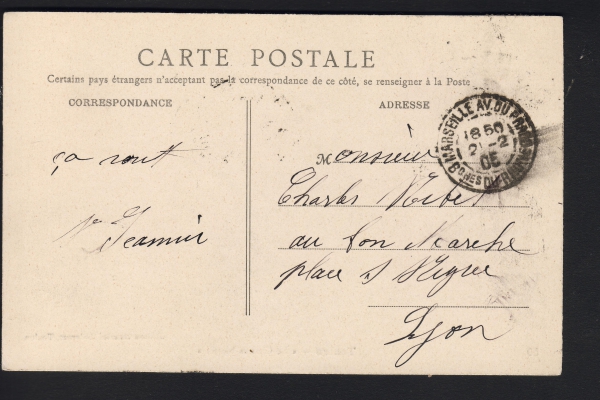 CARTE POSTALE
Certains pays étrangers n'acceptant pas la correspondance de ce côté, se renseigner à la Poste
CORRESPONDANCE
ADRESSE
MARSEILLE AV. DU PRADO
18 50
2
05
BCHES DU RHONE
ça
Monsieur
Charles
au bon Marche
place
Lyon